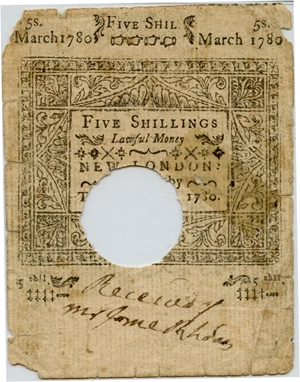 5s. FIVE SHIL 5s.
March 1780 March 1780
FIVE SHILLINGS
Lawful Money
NEW-LONDON:
by
T 1780.
5 shil 5 shil
Received